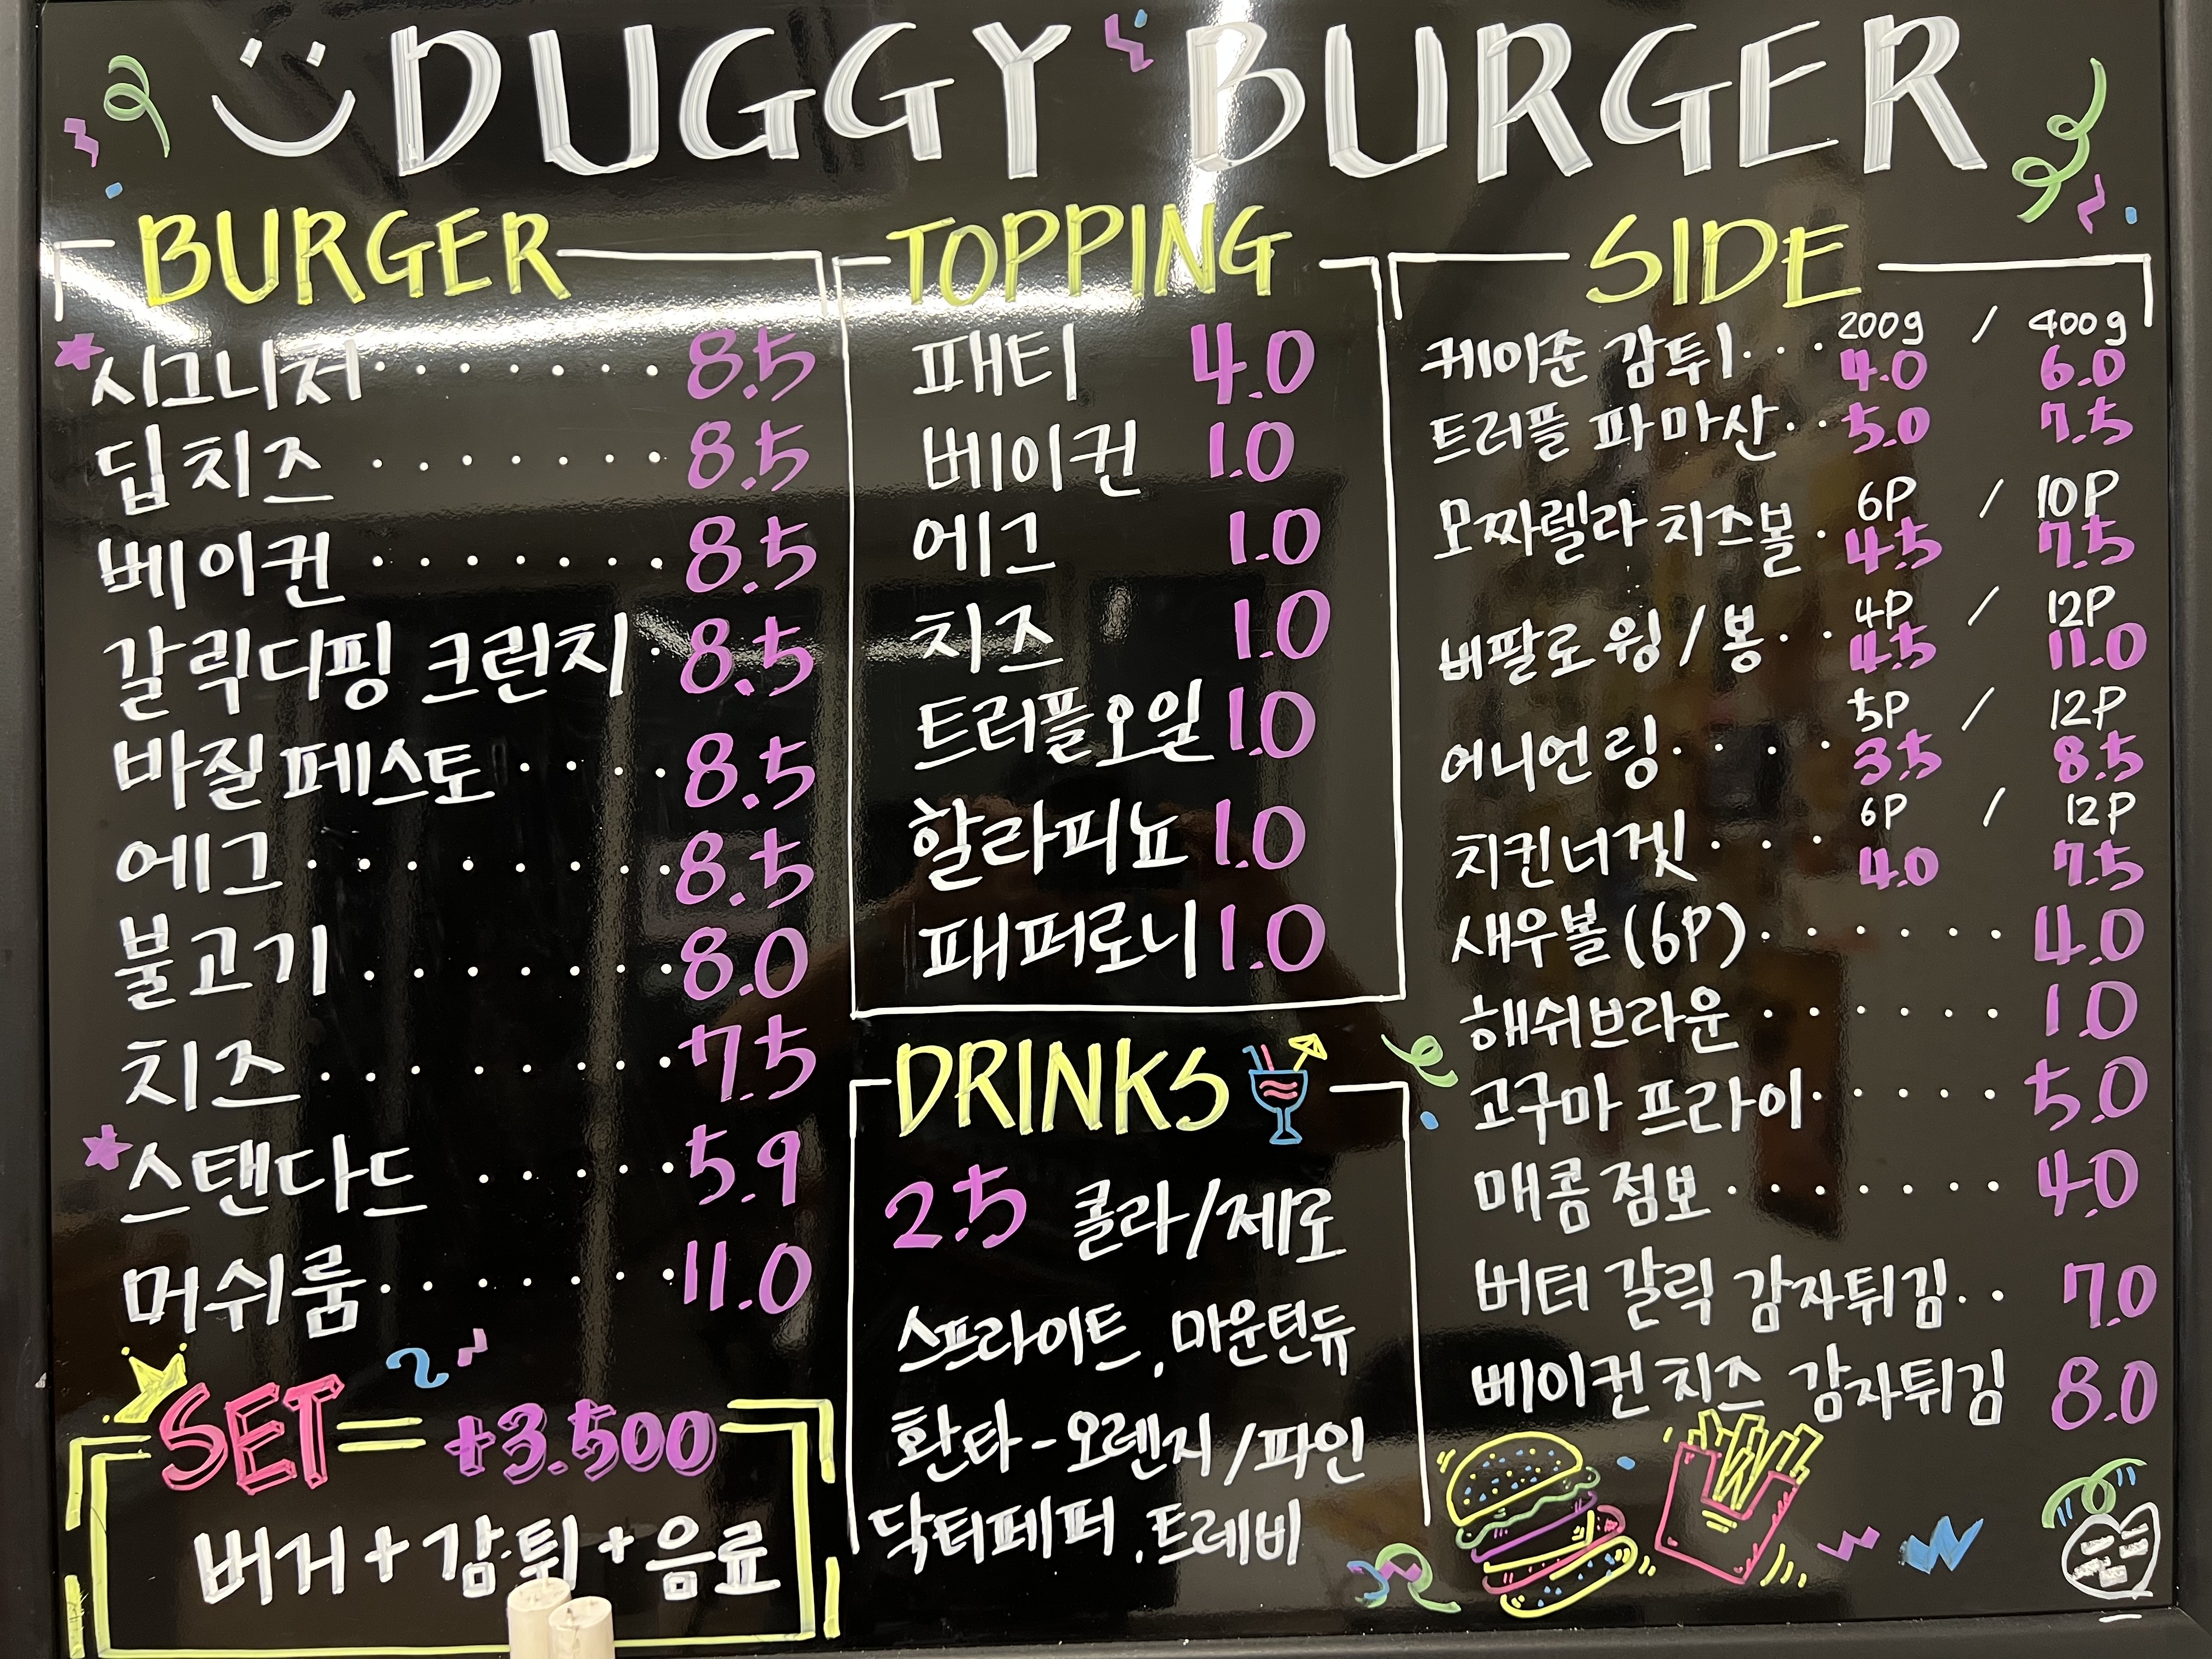 DUGGY BURGER
BURGER
시그니처 ········ 8.5
딥치즈 ········ 8.5
베이컨 ········ 8.5
갈릭디핑 크런치 · 8.5
바질페스토 ···· 8.5
에그 ········ 8.5
불고기 ········ 8.0
치즈 ········ 7.5
스탠다드 ····· 5.9
머쉬룸 ······· 11.0
SET = +3.500
버거+감튀+음료
TOPPING
패티 4.0
베이컨 1.0
에그 1.0
치즈 1.0
트러플오일 1.0
할라피뇨 1.0
패퍼로니 1.0
DRINKS
2.5 콜라/제로
스프라이트, 마운틴듀
환타-오렌지/파인
닥터페퍼, 트레비
SIDE
200g / 400g
케이준 감튀 ··· 4.0 6.0
트러플 파마산 ·· 5.0 7.5
6P / 10P
모짜렐라 치즈볼 · 4.5 7.5
4P / 12P
버팔로 윙/봉 ·· 4.5 11.0
5P / 12P
어니언링 ···· 3.5 8.5
6P / 12P
치킨너겟 ··· 4.0 7.5
새우볼(6P) ······· 4.0
해쉬브라운 ······ 1.0
고구마 프라이 ····· 5.0
매콤 점보 ······· 4.0
버터 갈릭 감자튀김 ·· 7.0
베이컨치즈 감자튀김 8.0